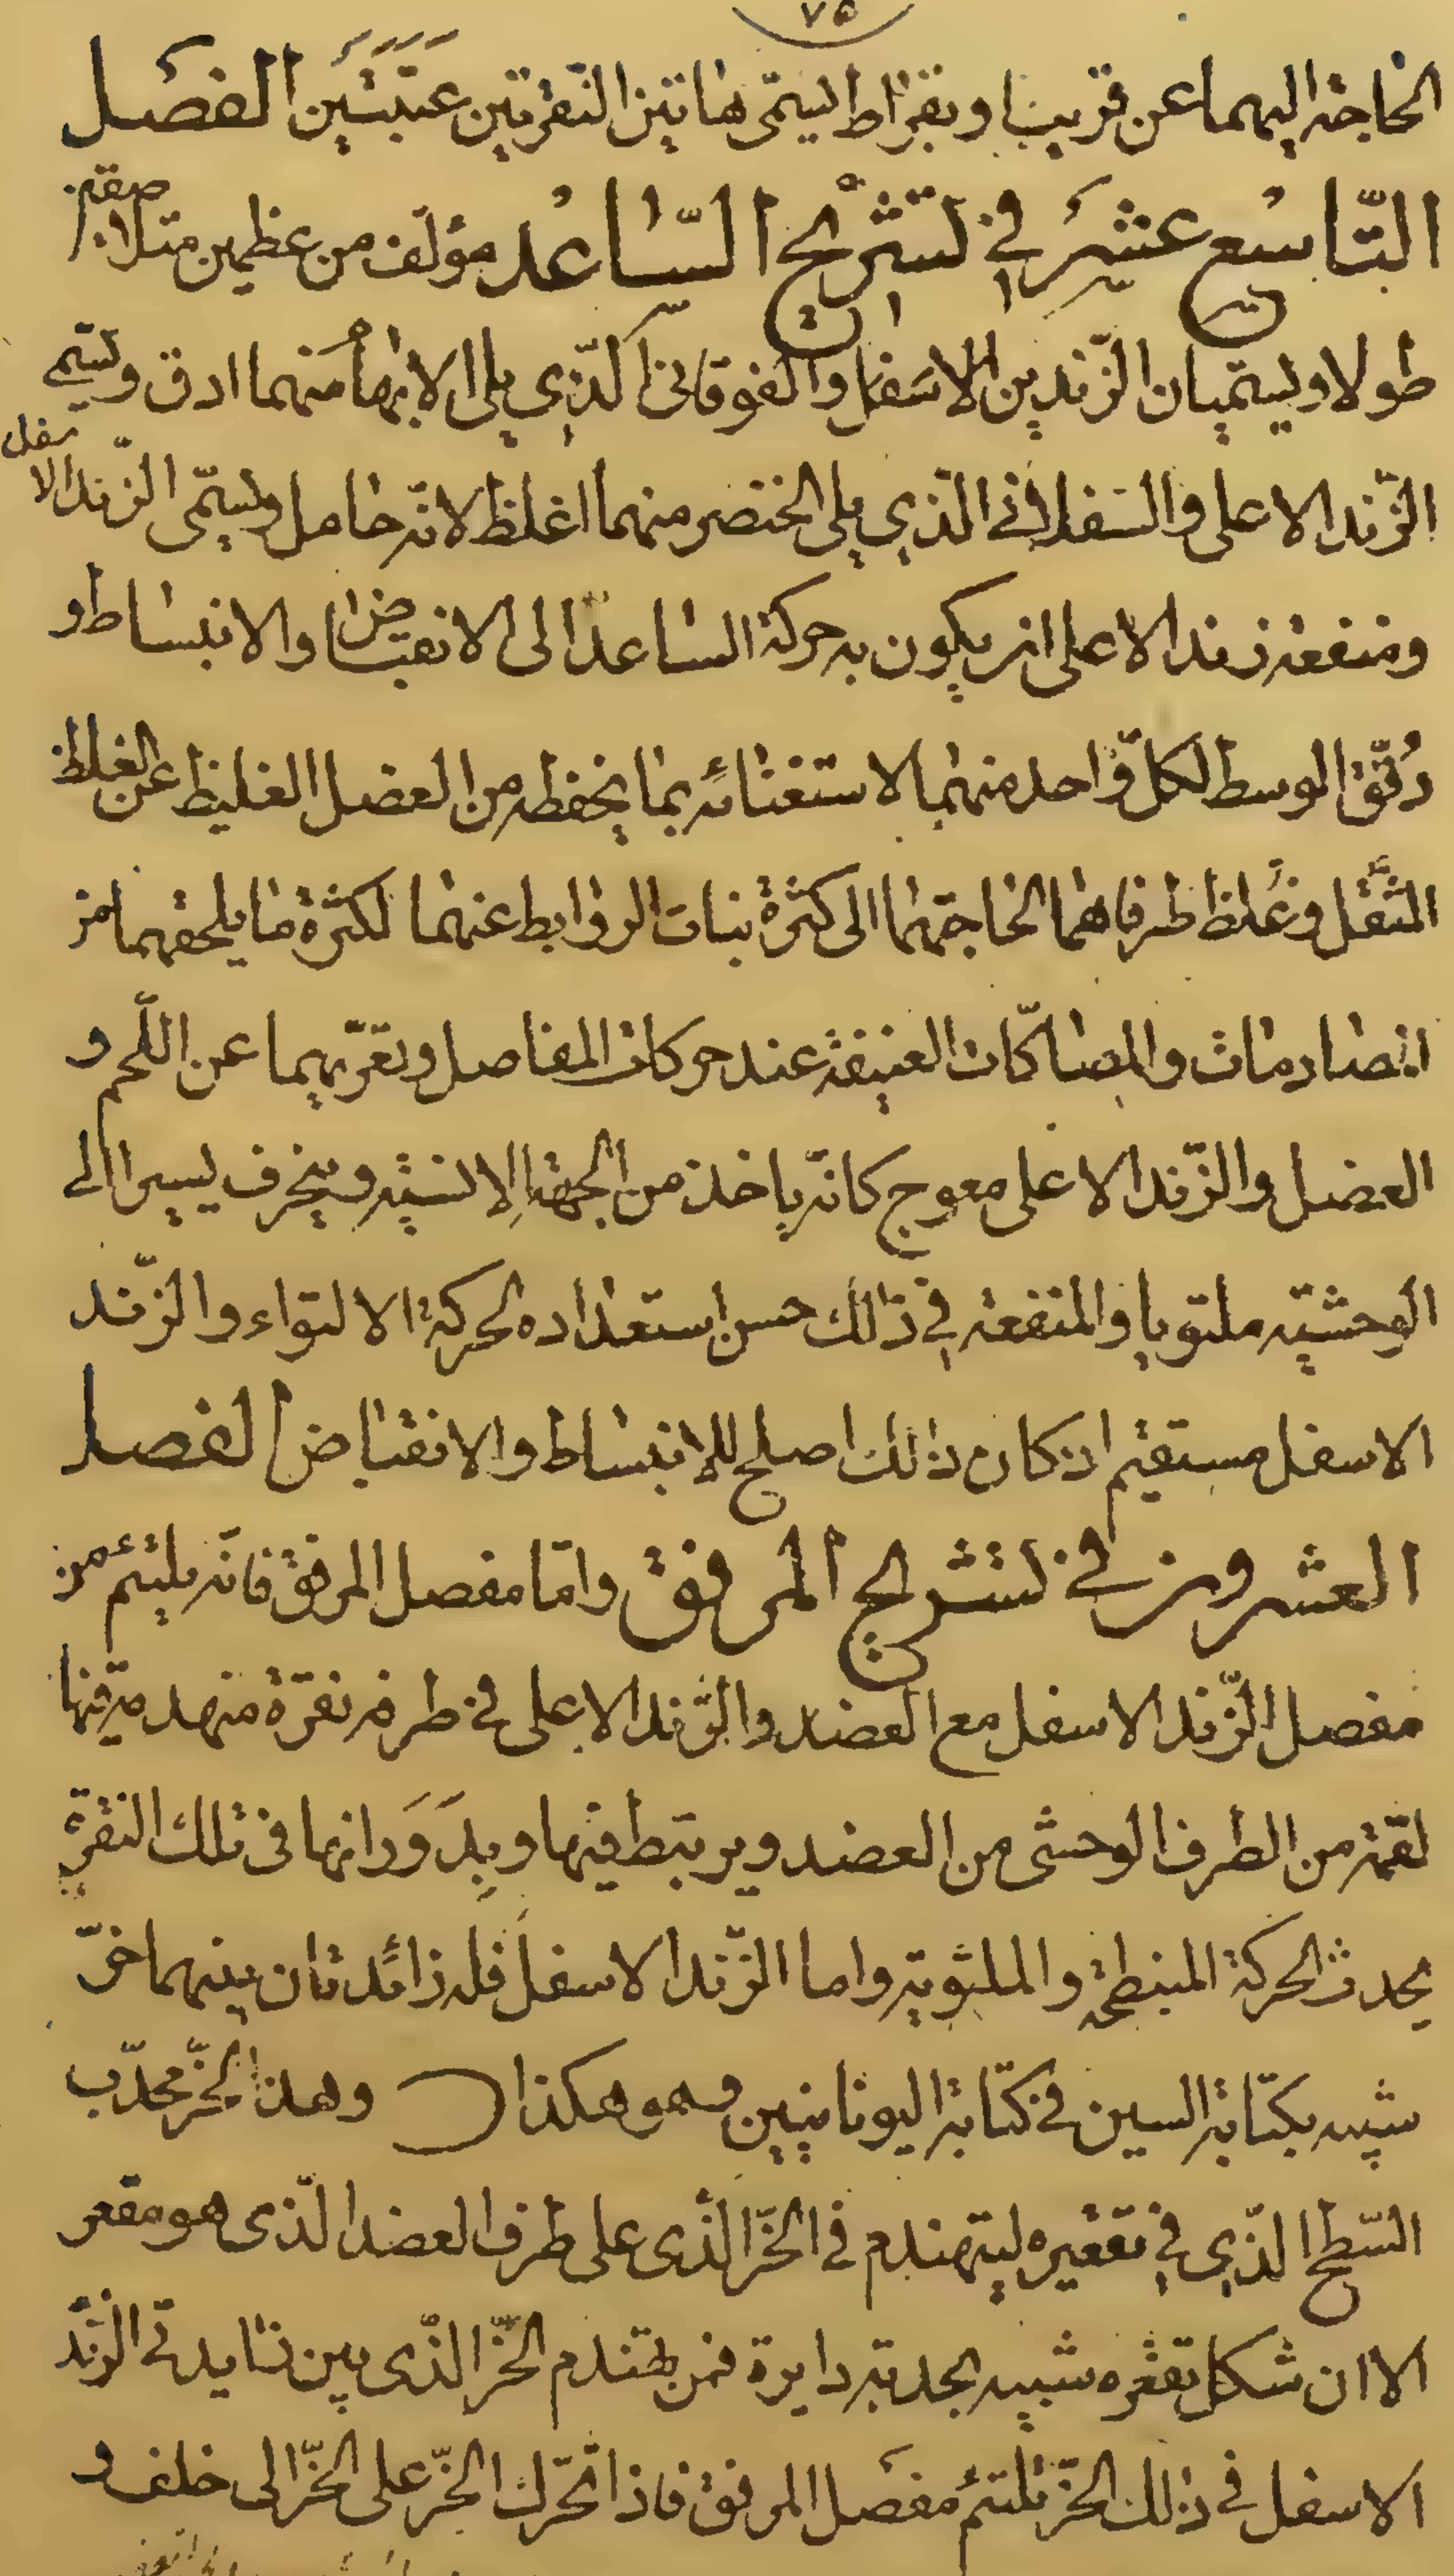 ٧٥
الحاجة اليهما عن قريب وبقراط يسمّى هاتين النقرتين عتبتين الفصل
التّاسع عشر في تشريح السّاعد مؤلّف من عظمين متلاصقين
طولا ويسمّيان الزّندين الاسفل والفوقانى الّذي يلى الابهام منهما ادق ويسمى
الزّند الاعلى والسفلانى الّذي يلى الخنصر منهما اغلظ لانّه حامل ويسمّى الزّند الاسفل
ومنفعة زند الاعلى ان يكون به حركة الساعد الى الانقباض والانبساط و
دُقّق الوسط لكلّ واحد منهما لاستغنائه بما يحفظه من العضل الغليظ عن الغلظ
المثقّل وغلظ طرفاهما لحاجتهما الى كثرة نبات الروابط عنهما لكثرة ما يلحقهما من
المصادمات والمصاكّات العنيفة عند حركات المفاصل وتعرّيهما عن اللّحم و
العضل والزّند الاعلى معوج كانّه ياخذ من الجهة الانسيّة وينحرف يسيرا الى
الوحشيّه ملتويا والمنفعة في ذالك حسن استعداده لحركة الالتواء والزّند
الاسفل مستقيم اذ كان ذالك اصلح للانبساط والانقباض الفصل
العشرون في تشريح المرفق وامّا مفصل المرفق فانّه يلتئم من
مفصل الزّند الاسفل مع العضد والزّند الاعلى في طرفه نقرة مهندمة فيها
لقمة من الطرف الوحشى من العضد ويرتبط فيها وبِدَوَرانها فى تلك النقرة
يحدث الحركة المنبطحة والملتوية واما الزّند الاسفل فله زائدتان بينهما حزّ
شبيه بكتابة السين في كتابة اليونانيين وهو هكذا وهذا الحزّ محدّب
السّطح الّذي في تقعيره ليتهندم فى الحزّ الّذى على طرف العضد الّذى هو مقعر
الا ان شكل تقعّره شبيه بحدبة دايرة فمن تهندم الحزّ الّذى بين زايدتى الزّند
الاسفل في ذالك الحزّ تلتئم مفصل المرفق فاذا تحرّك الحزّ على الحزّ الى خلف و